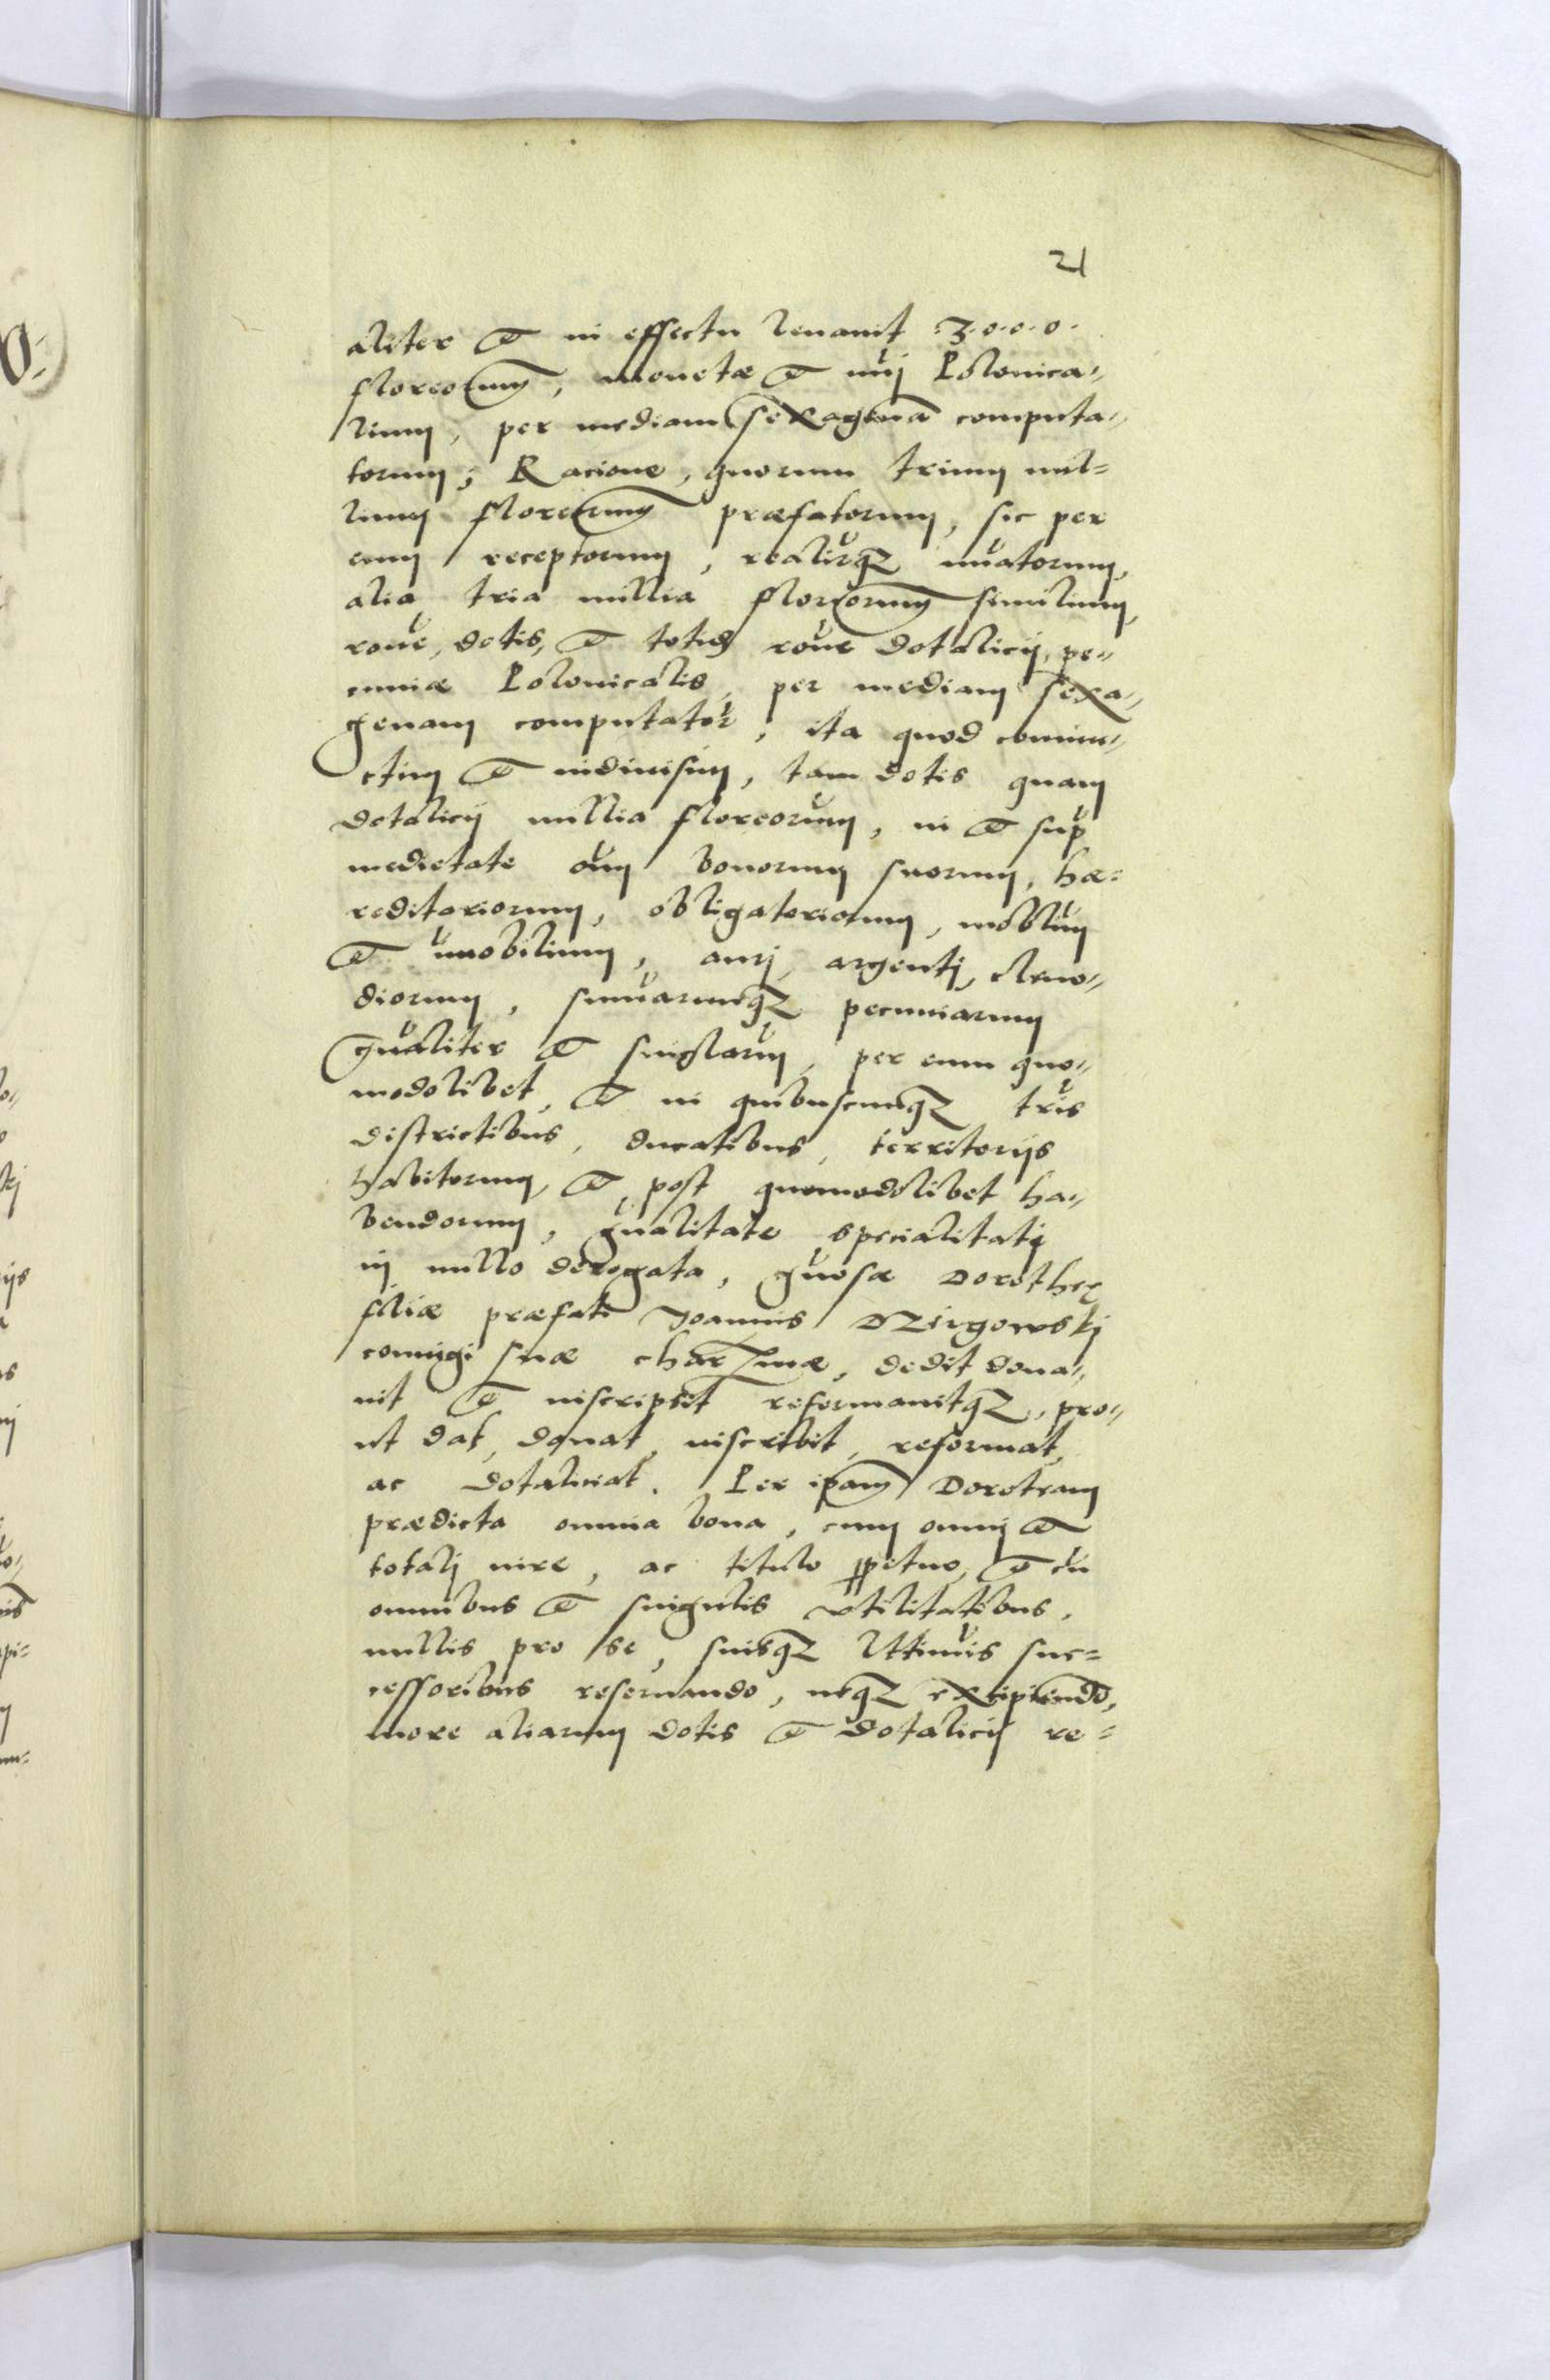 21
aliter et in effectu leuauit 3.0.0.0.
floreorum, monetæ et nūj Polonica„
lium, per mediam sexagenā computa„
torum; Racione, quorum trium mil=
lium floreorum præfatorum, sic per
eum receptorum, realirqȝ nūatorum,
alia tria millia floreorum similium,
rōne, dotis, et totid rōne dotalicij, pe„
cuniæ Polonicalis, per mediam sexa„
genam computator, ita quod coniun„
ctim et indiuisim, tam dotis quam
dotalicij millia floreorum, in et sup
medietate oīm bonorum suorum, hæ=
reditariorum, obligatoriorum, moblium
et īmobilium, aurj, argentj, cleno„
diorum, summarumqȝ pecuniarum
gnāliter et singlarum, per eum quo„
modolibet, et in quibuscunqȝ tris
districtibus, ducatibus, territorijs
habitorum, et post quomodolibet ha„
bendorum, gnālitate specialitatj
in nullo derogata, gnosæ Dorotheę
filiæ præfati Joannis Dzirgowskj
coniugi suæ char̄mæ, dedit dona„
uit et inscripsit reformauitqȝ, pro„
ut dat, donat, inscribit, reformat,
ac dotaliciat. Per ip̄am Dorotheam
prædicta omnia bona, cum omnj et
totalj iure, ac titulo ppetuo, et cū
omnibus et singulis vtilitatibus,
nullis pro se, suisqȝ lttimis suc=
cessoribus reseruando, neqȝ excipiendo,
more aliarum dotis et dotalicij re=